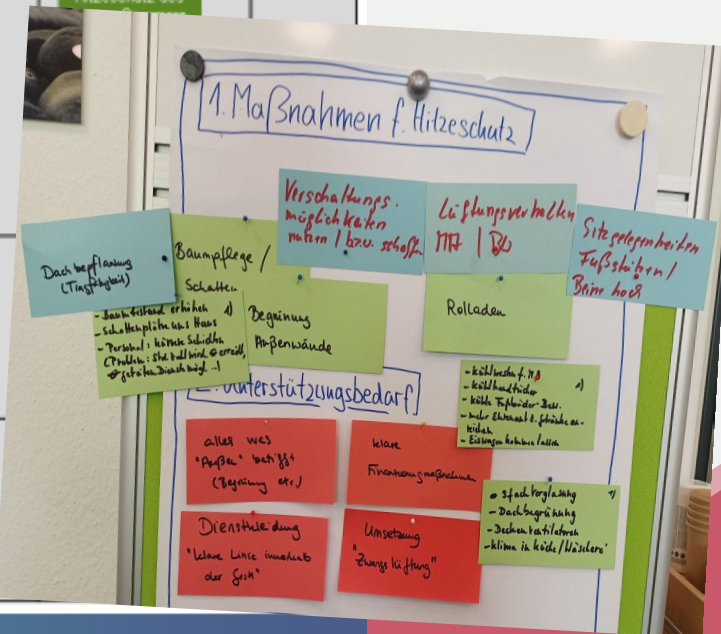 1. Maßnahmen f. Hitzeschutz
Verschattungs-
möglichkeiten
nutzen / bzw. schaffen
Lüftungsverhalten
MA / Bw
Sitzgelegenheiten
Fußstützen /
Beine hoch
Dachbepflanzung
(Tragfähigkeit)
Baumpflege /
Schatten
- Baumbestand erhöhen
- Schattenplätze ums Haus
- Personal: kürzere Schichten
(Problem: Std. soll wird erreicht,
geteilter Dienst mögl. ..)
Begrünung
Außenwände
Rolladen
2. Unterstützungsbedarf
- Kühlwesten f. MA
- Kühlhandtücher
- kühle Fußbäder Bew.
- mehr Ehrenamt z. Getränke an-
reichen
- Eiswagen kommen lassen
alles was
"Außen" betrifft
(Begrünung etc.)
klare
Finanzierungsmaßnahmen
3fach Verglasung
- Dachbegrünung
- Deckenventilatoren
- Klima in Küche / Wäscherei
Dienstkleidung
"klare Linie innerhalb
der
Umsetzung
"Zwangslüftung"